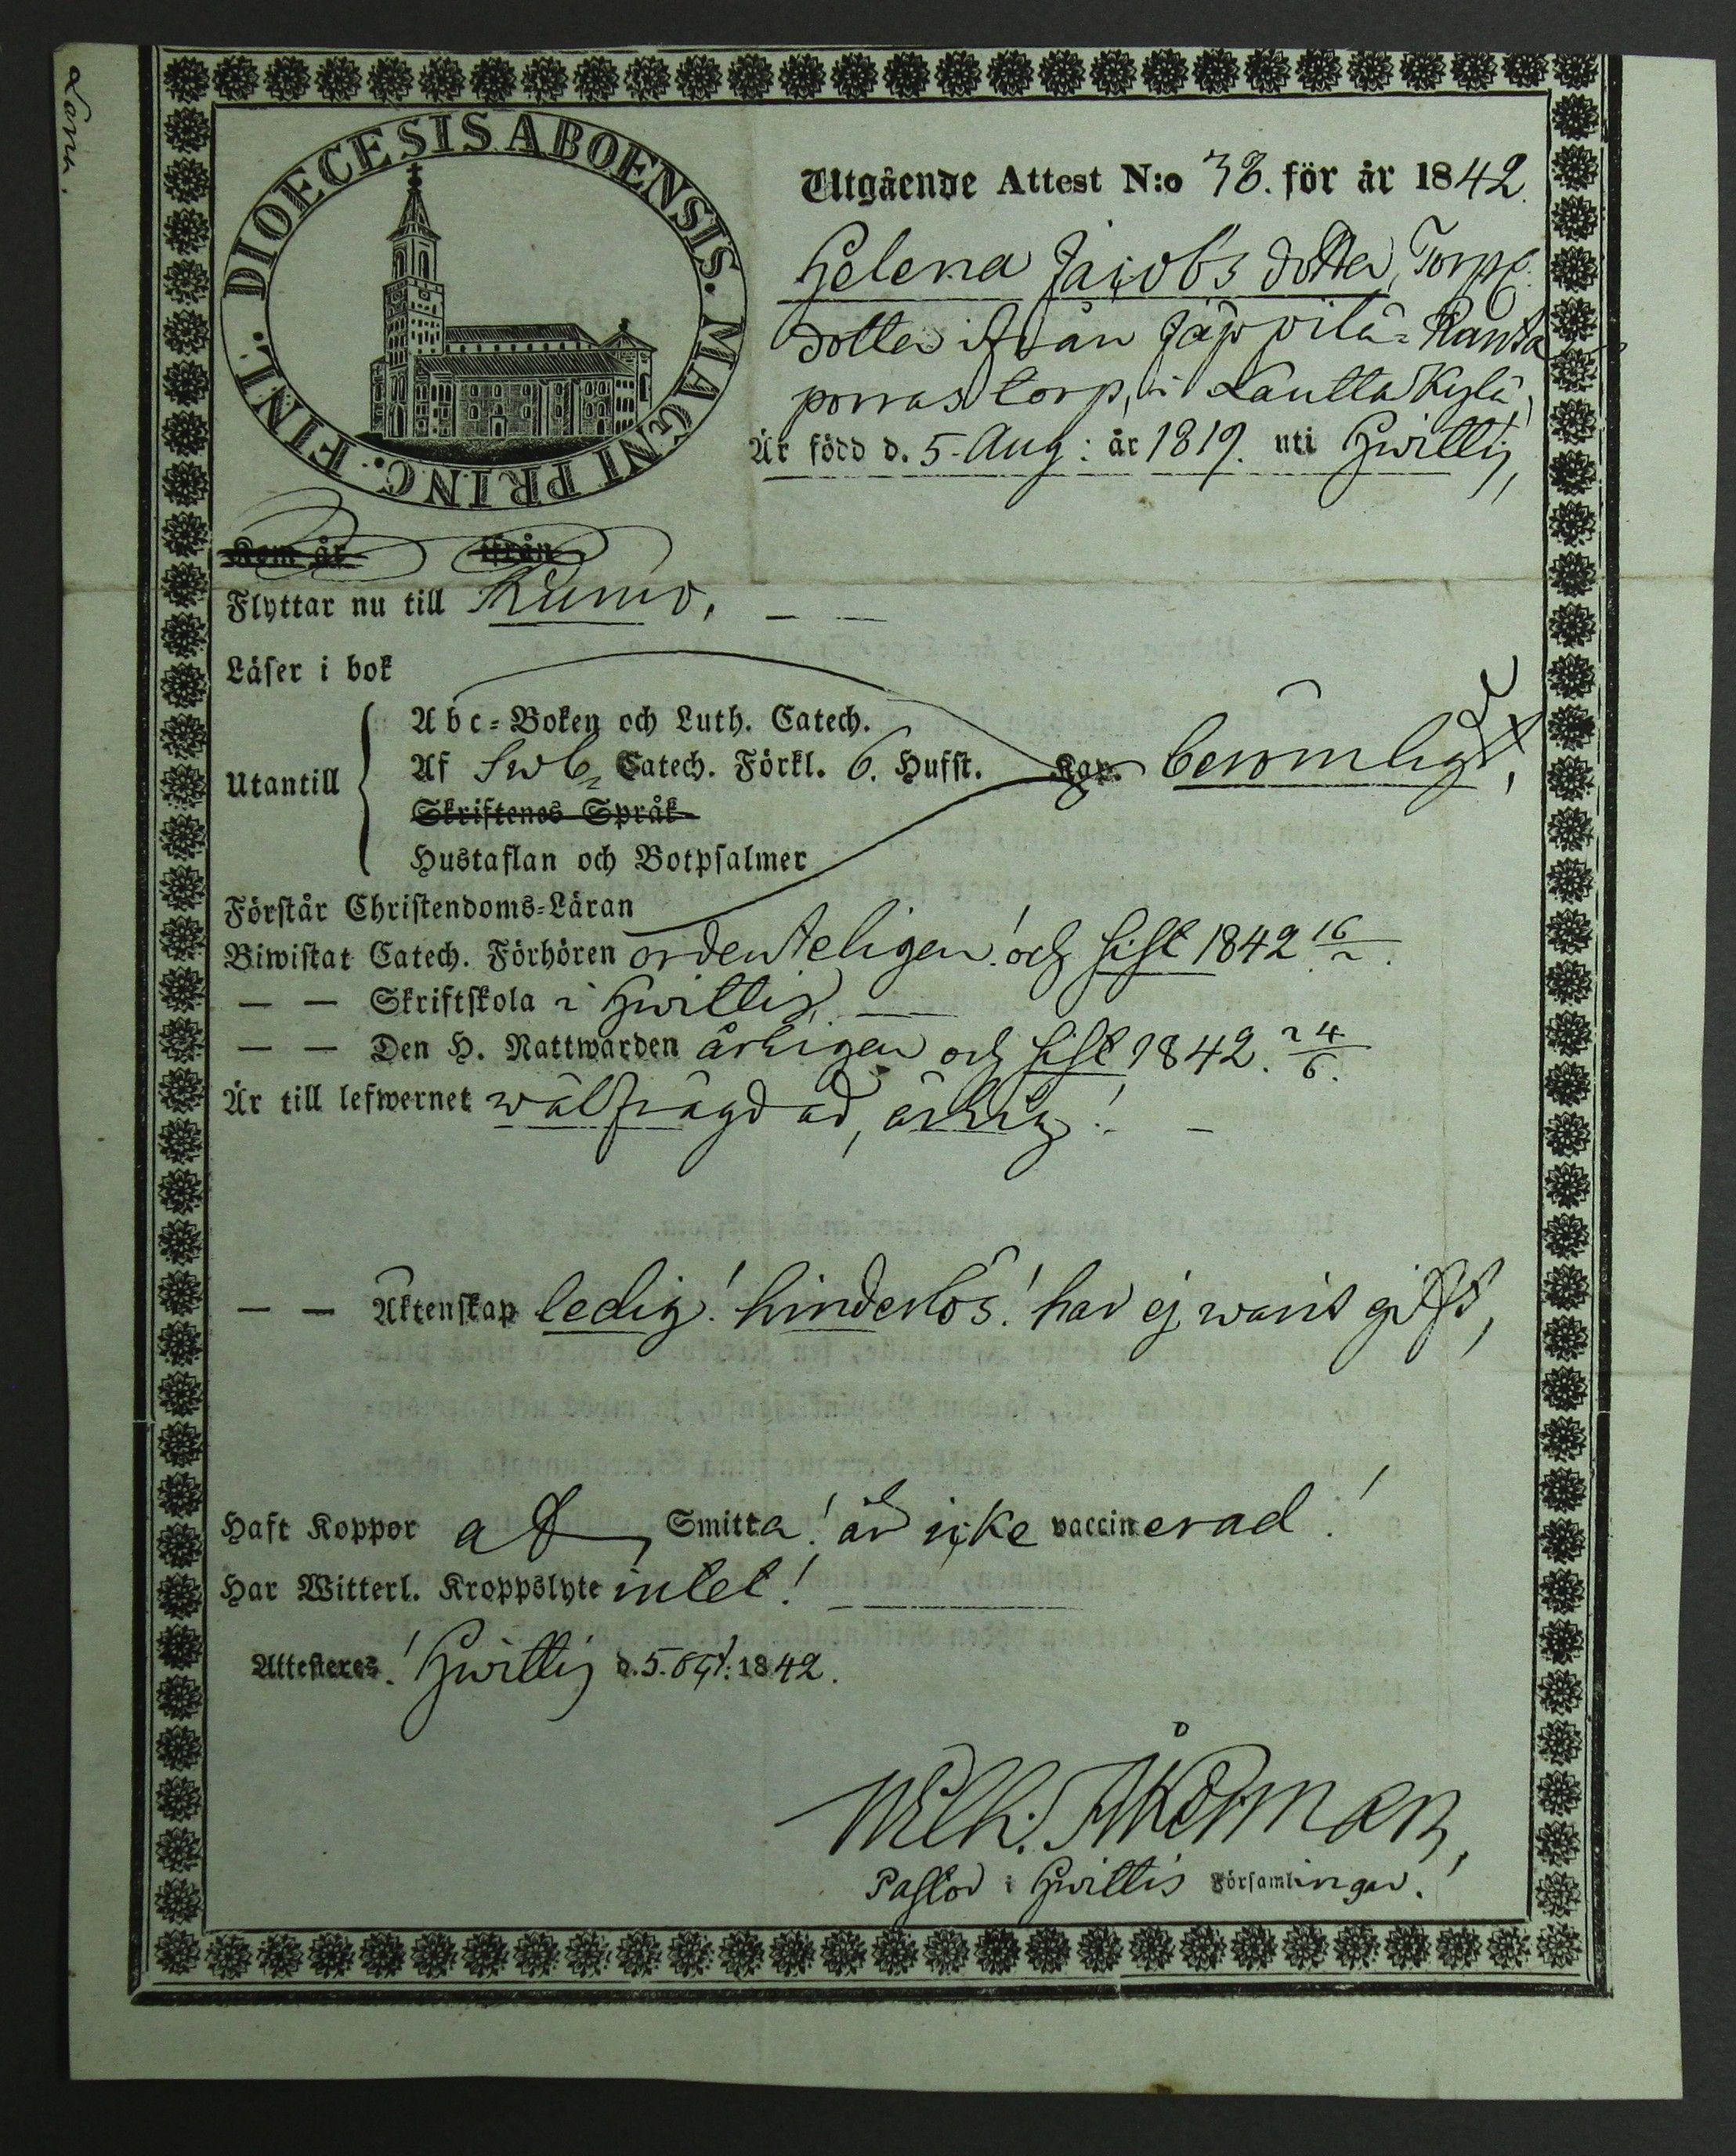 DIOECESIS ABOENSIS. MAGNI PRINC. FINL.
Utgående Attest N:o 38. för år 1842.
Helena Jacobs dotter, Torp.
dotter ifrån Jäppilä-Ranta
porras torp, i Lauttakylä,
Är född d. 5. Aug: år 1819. uti Hwittis,
Kom år ifrån
Flyttar nu till Kumo,
Läser i bok
Abc-Boken och Luth. Catech.
Utantill
Af Swb. Catech. Förkl. 6. Hufst. Kap. berömligt,
Skriftenes Språk
Hustaflan och Botpsalmer
Förstår Christendoms-Läran
Biwistat Catech. Förhören ordenteligen! och sist 1842 16/2.
— — Skriftskola i Hwittis,
— — Den H. Nattwarden årligen och sist 1842. 24/6.
Är till lefwernet wälfrägdad, ärlig!
— — Äktenskap ledig! hinderlös! har ej warit gift,
Haft Koppor af Smitta! är icke vaccinerad!
Har Witterl. Kroppslyte intet!
Attesteres! Hwittis d. 5. 1842.
Wilh. Åkerman,
Pastor i Hwittis Församlingar!